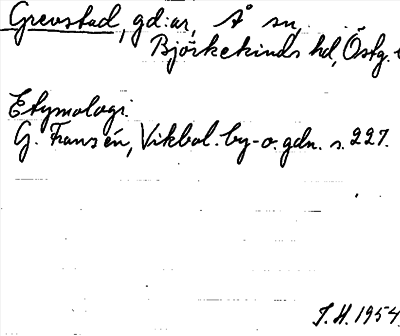 Grevstad, gd:ar, Å sn,
Björkekinds hd, Östg.
Etymologi.
G. Franzén, Vikbol. by- o. gdn. s. 227.
J.H. 1954